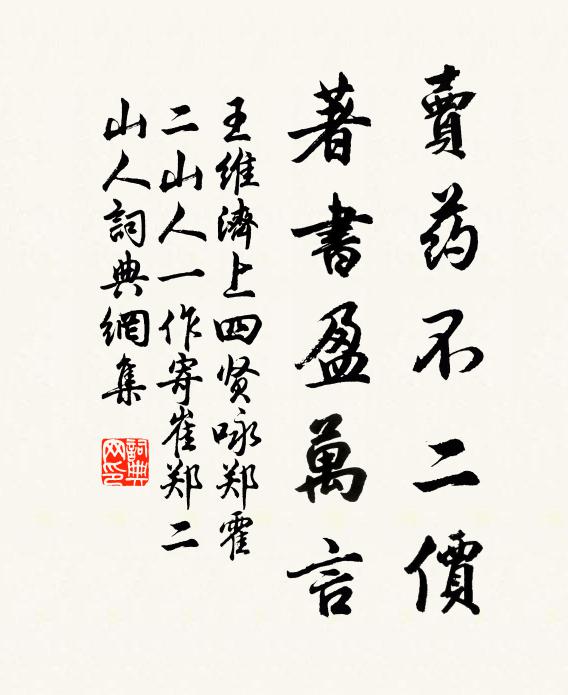 賣药不二價
著書盈萬言
王維濟上四贤咏郑霍
二山人一作寄崔郑二
山人詞典網集
詞典网印